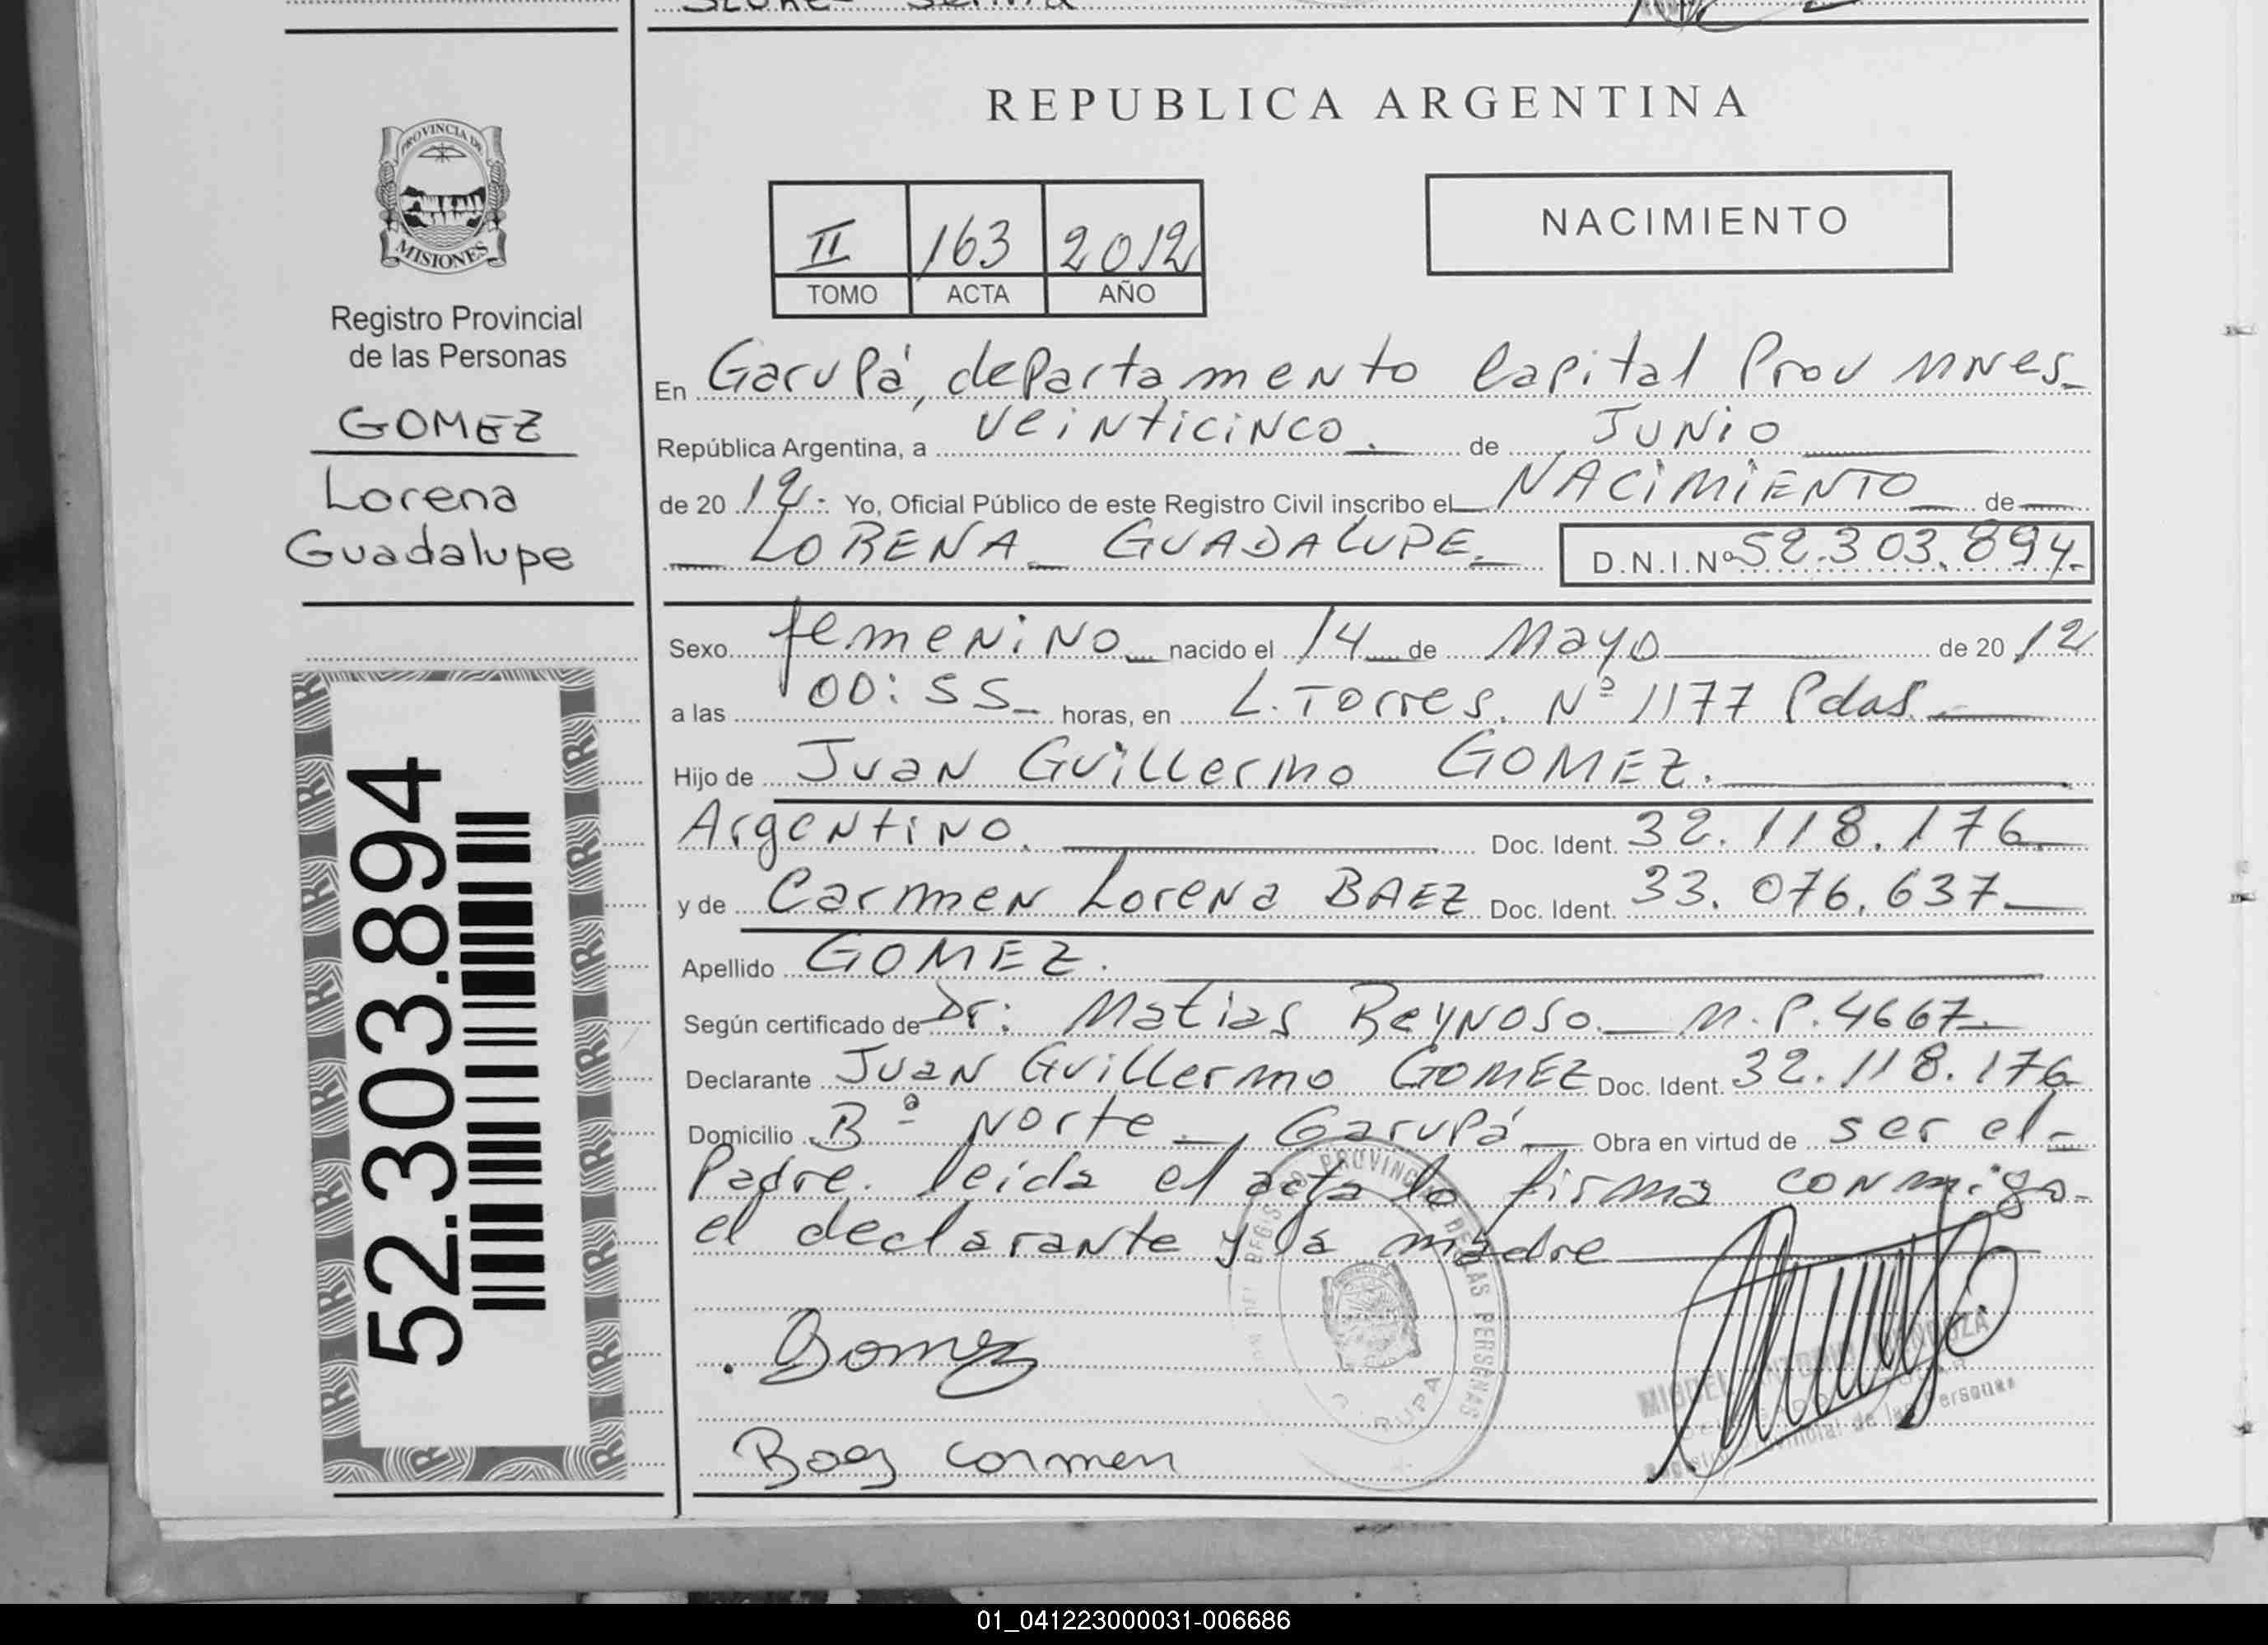 PROVINCIA DE
MISIONES
Registro Provincial
de las Personas
GOMEZ
Lorena
Guadalupe
52.303.894
REPUBLICA ARGENTINA
II 163 2012
TOMO ACTA AÑO
NACIMIENTO
En Garupá, departamento Capital Prov MNes
República Argentina, a veinticinco. de Junio
de 20 12.- Yo, Oficial Público de este Registro Civil inscribo el NACIMIENTO de
LORENA GUADALUPE. D.N.I.Nº 52.303.894.
Sexo femenino nacido el 14 de Mayo de 20 12
a las 00:55 horas, en L. Torres. Nº 1177 Pdas.
Hijo de Juan Guillermo GOMEZ.
Argentino. Doc. Ident. 32.118.176
y de Carmen Lorena BAEZ Doc. Ident. 33.076.637
Apellido GOMEZ.
Según certificado de Dr: Matias Reynoso M.P. 4667.
Declarante Juan Guillermo GOMEZ Doc. Ident. 32.118.176
Domicilio Bº Norte, Garupá Obra en virtud de ser el
Padre. leida el acta lo firma conmigo
el declarante y la madre
Gomez
Baez Carmen
01_041223000031-006686